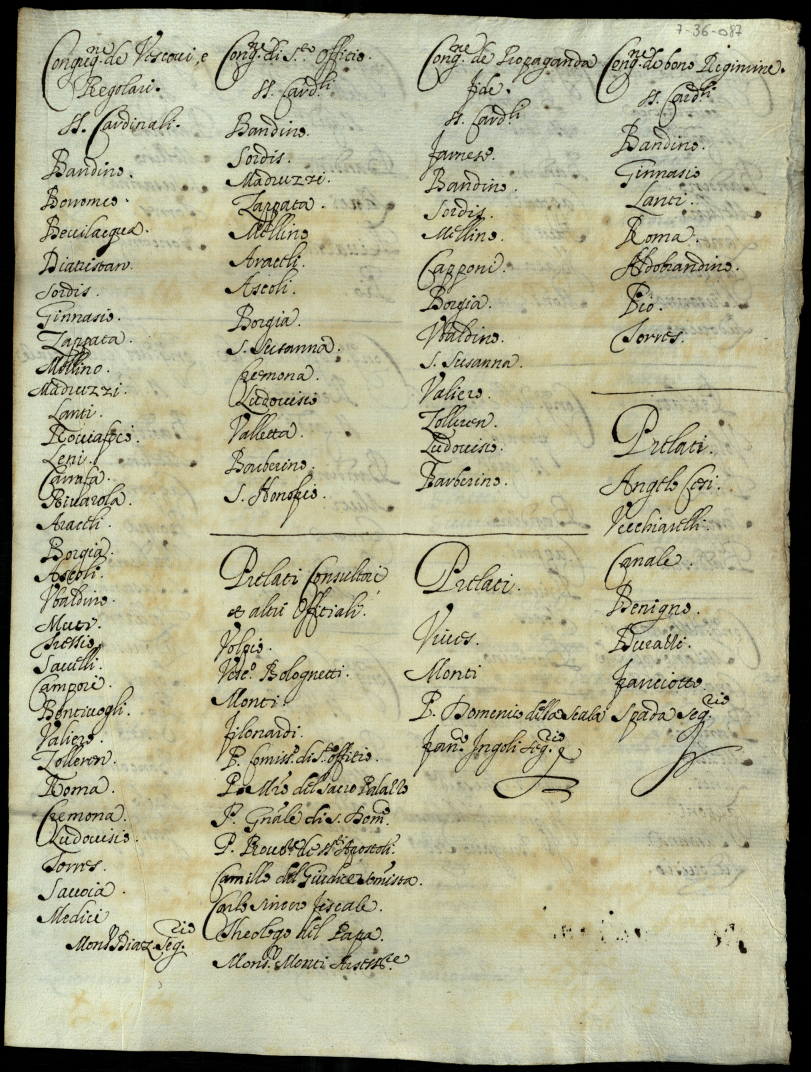 7-36-087
Congreg.ne de Vescoui, e
Regolari.
SS. Cardinali.
Bandino.
Borromeo
Beuilacqua.
Diatristan
Sordis.
Ginnasio.
Zappata.
Mellino.
Madruzzi.
Lanti.
Leni.
Carrafa.
Riuarola.
Araceli.
Borgia.
Ascoli.
Vbaldino.
Muti.
Sauelli.
Campori.
Bentiuogli.
Valiero.
Zolleren.
Roma.
Cremona.
Ludouisio.
Torres.
Sauoia.
Medici
Mons.r Diaz Seg.rio
Cong.ne di S.to Officio.
SS. Card.li
Bandino.
Sordis.
Madruzzi.
Zappata.
Mellino
Araceli.
Ascoli.
Borgia.
S. Susanna.
Cremona.
Ludouisio
Valletta.
Barberino.
S. Honofrio.
Prelati Consultori
et altri Offitiali.
Volpio.
Bolognetti.
Monti.
Filonardi.
P. Comiss.o di S.to offitio.
P. M.ro del Sacro Palazzo
P. Gn̄ale di S. Dom.co
P. de SS.ti Apostoli.
Camillo del Giudice
Carlo Sincero fiscale.
Theologo del Papa.
Mons.r Monti Assess.re
Cong.ne de Propaganda
fide.
SS. Card.li
farnese.
Bandino.
Sordis.
Mellino.
Capponi.
Borgia.
Vbaldino.
S. Susanna.
Valiero.
Zolleren.
Ludouisio.
Barberino.
Prelati.
Viues.
Monti
P. Domenico della Scala
fran.co Ingoli Seg.rio
Cong.ne de bono Regimine.
SS. Card.li
Bandino.
Ginnasio
Lanti.
Roma.
Aldobrandino.
Pio.
Torres.
Prelati.
Angelo Cesi.
Vecchiarelli.
Canale.
Benigno.
Duralli.
franciotto.
Spada Seg.rio